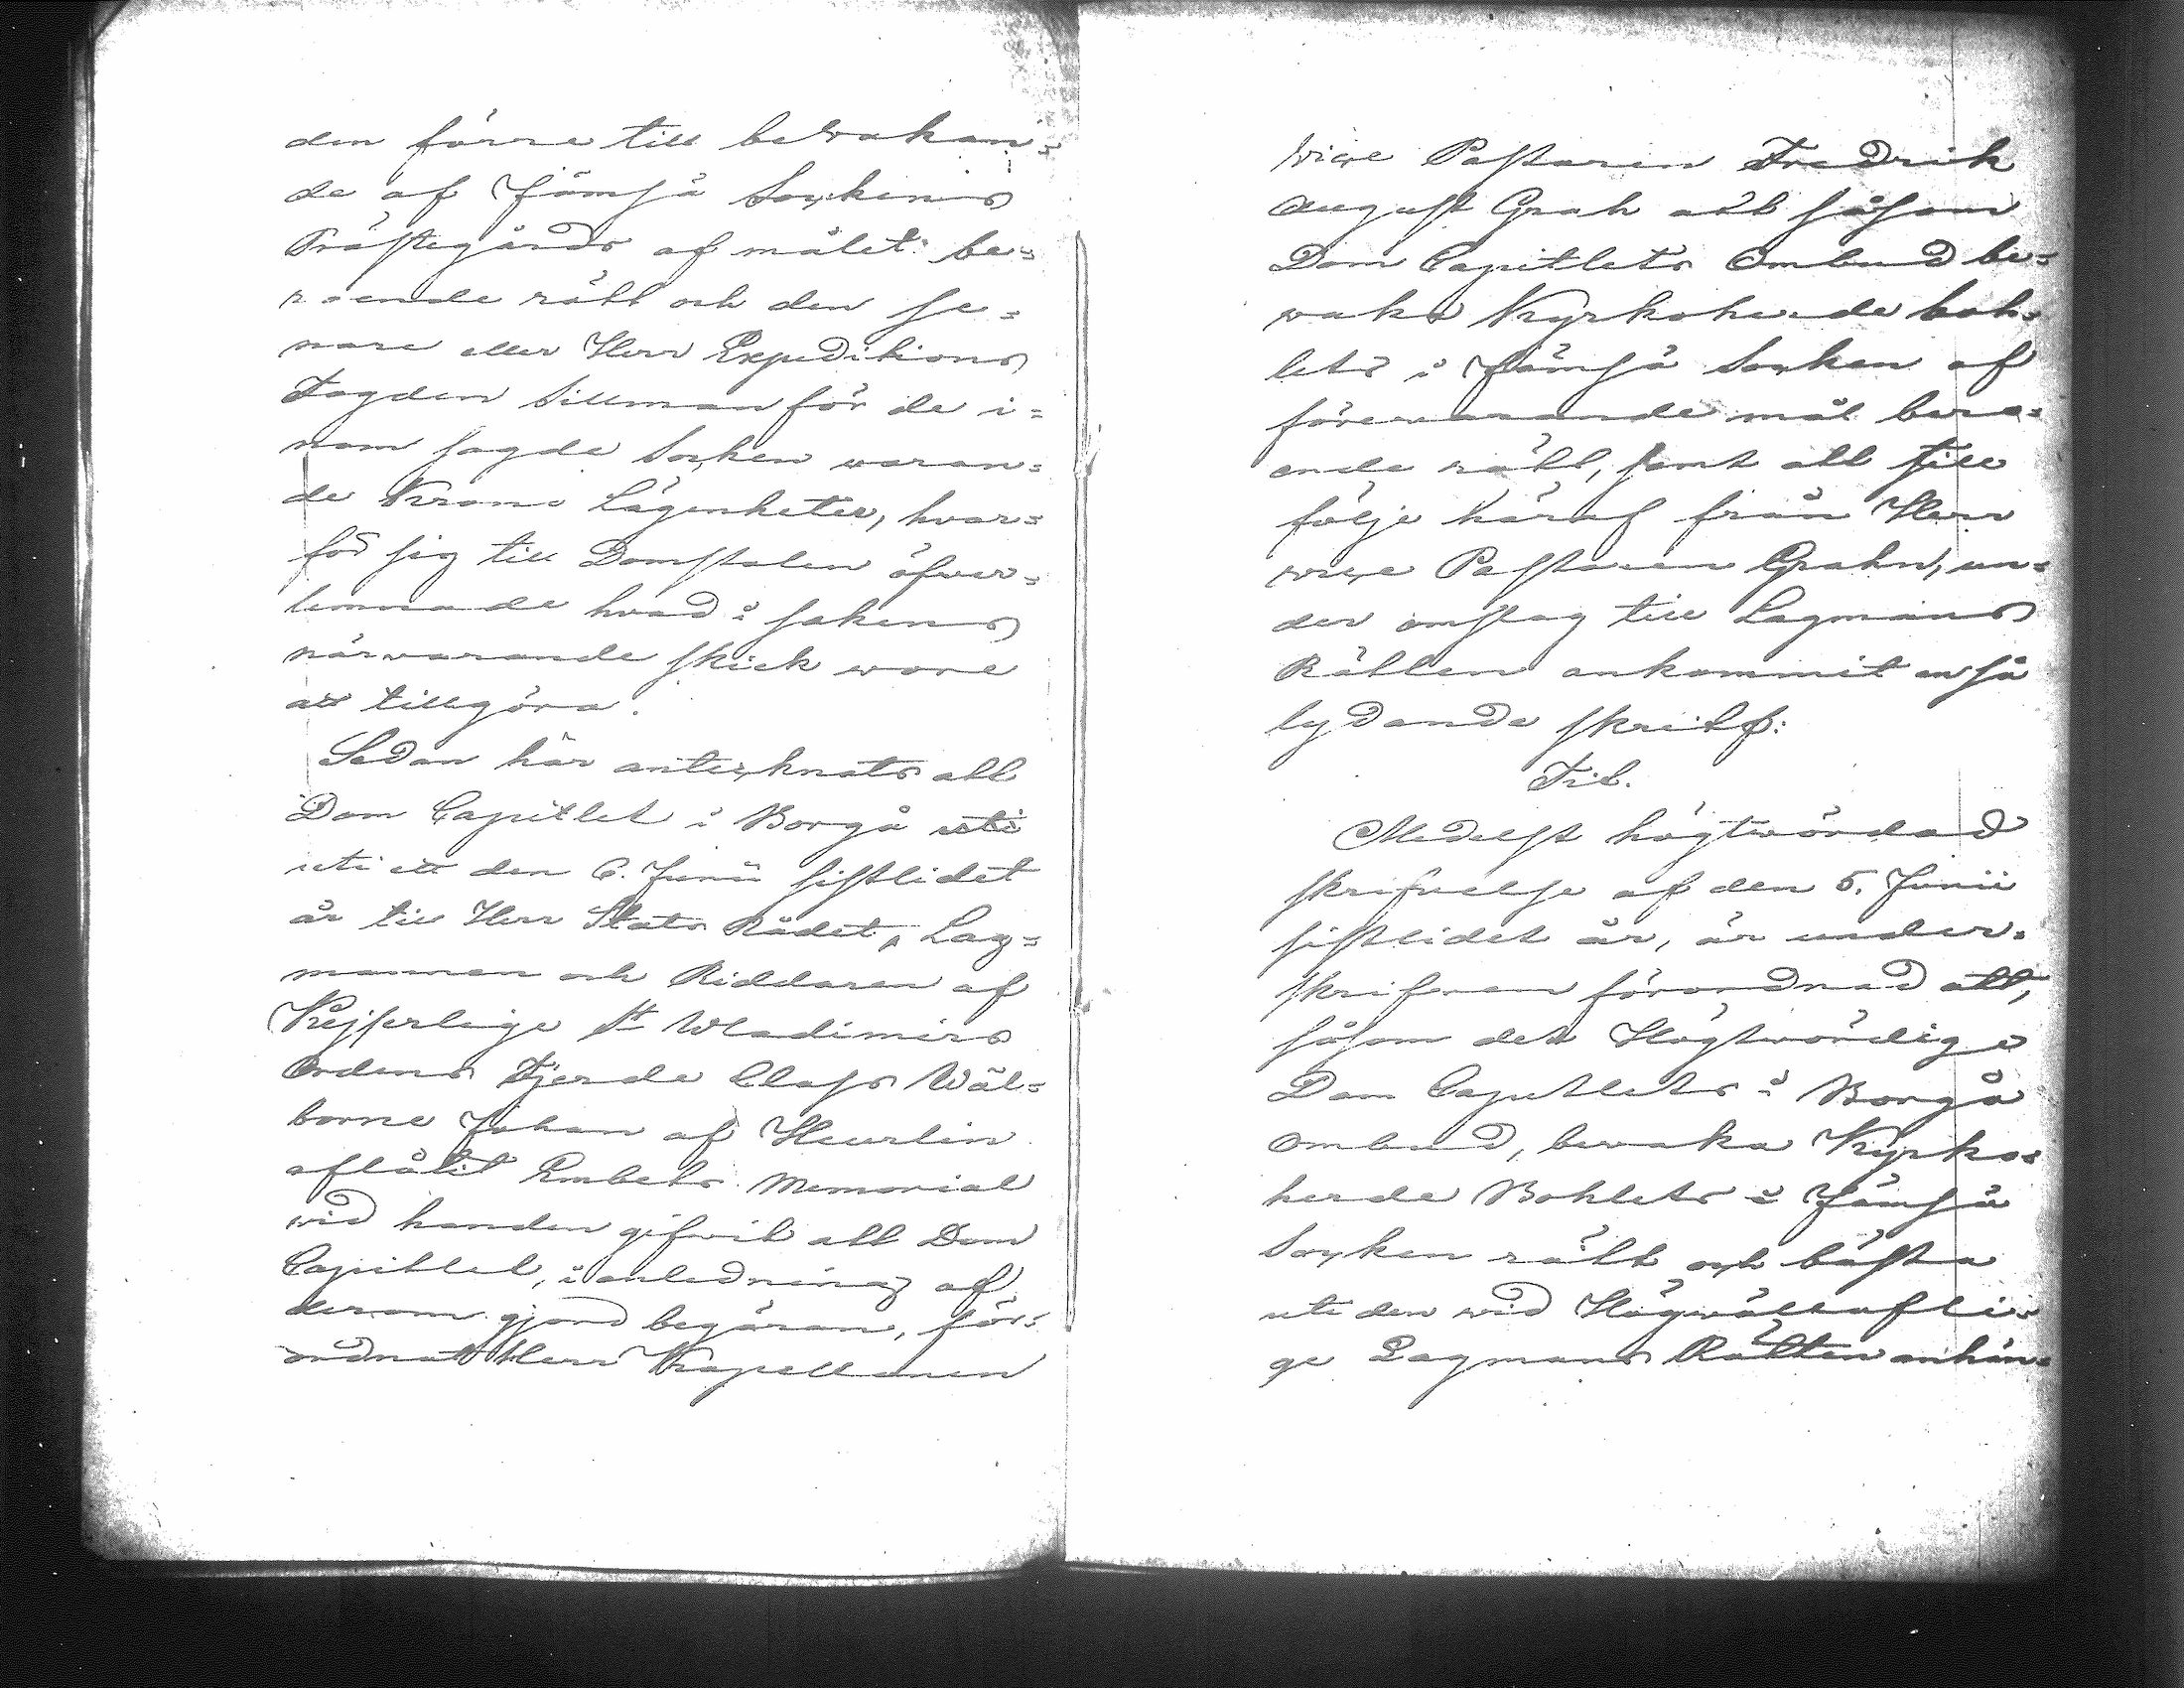 den förre till bewakan=
de af Jämsä Sockens
Prästegårds af målet be=
roende rätt och den se=
nare eller Herr Expeditions
Fogden Sillman för de i=
nom sagde Socken waran=
de Krono Lägenheter, hvar=
för sig till Domstolen öfwer=
lemnade hvad i sakens
närwarande skick wore
att tillgöra.
Sedan här antecknats att
Dom Capitlet i Borgå uti
uti ett den 6. Junii sistlidet
år till Herr Stats Rådet, Lag=
mannen och Riddaren af
Kejserlige St Wladimirs
Ordens Fjerde Class Wäl=
borne Johan af Heurlin
aflåtit Embets Memorial
wid handen gifwit att Dom
Capitlet, i anledning af
derom gjord begäran, för=
ordnat Herr Kapellanen
wice Pastoren Fredrik
August Grah att såsom
Dom Capitlets Ombud be=
waka Kyrkoherde boh=
lets i Jämsä Socken af
förewarande mål bero=
ende rätt, samt att till
följe häraf från Herr
wice Pastoren Grahn, un=
der omslag till Lagmans
Rätten ankommit en så
lydande skrift:
Til.
Medelst högtwördad
skrifwelse af den 6. Junii
sistlidet år, är under=
skrifwen förordnad att,
såsom det Högtwördige
Dom Capitlets i Borgå
ombud, bewaka Kyrko=
herde Bohlets i Jämsä
Socken rätt och bästa
uti den wid Högwällofli=
ge Lagmans Rätten anhän=